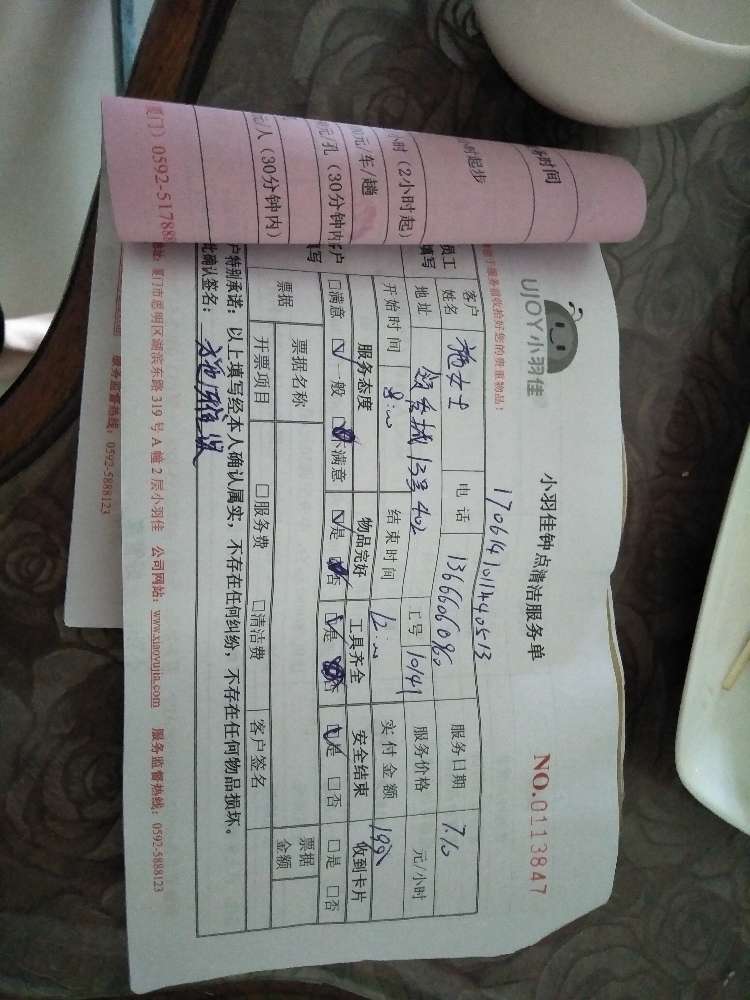 UJOY小羽佳
小羽佳钟点清洁服务单
NO.0113847
客户姓名 施女士 电话 服务日期 7.10
地址 13号402 工号 1041 服务价格 元/小时
开始时间 8:00 结束时间 12:00 实付金额
服务态度 物品完好 工具齐全 安全结束 收到卡片
□满意 □一般 □不满意 □是 □否 □是 □否 □是 □否 □是 □否
票据 票据名称 票据金额
开票项目 □服务费 □清洁费 客户签名
户特别承诺：以上填写经本人确认属实，不存在任何纠纷，不存在任何物品损坏。
此确认签名：
厦门市思明区湖滨东路319号A幢2层小羽佳 公司网站：www.xiaoyujia.com 服务监督热线：0592-5888123
服务监督热线：0592-5888123
时间
时起步
小时（2小时起）
00元/车/趟
元/孔（30分钟内
元/人（30分钟内）
厦门）0592-51788